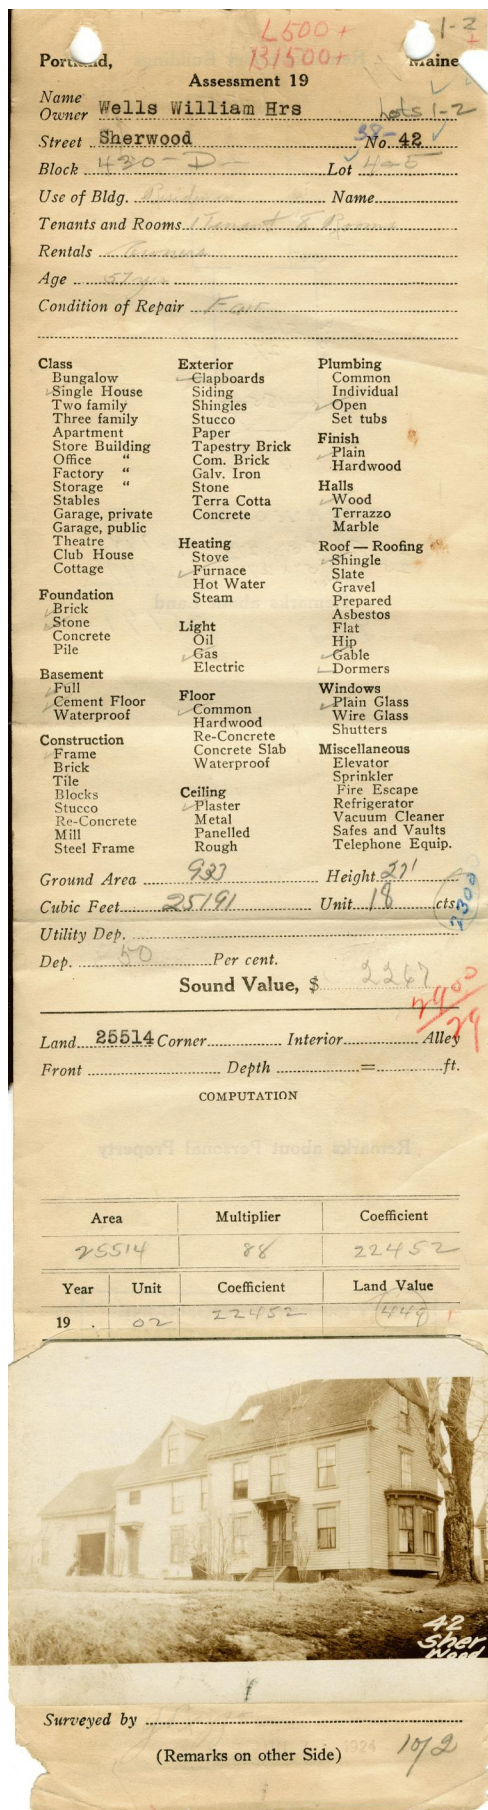 L500+
1-2
+
B1500+
Portland, Maine
Assessment 19
Name
Owner Wells William Hrs Lots 1-2
Street Sherwood 38- No. 42
Block 430-D- Lot 4-5
Use of Bldg. Name
Tenants and Rooms 1 Tenant 8 Rooms
Rentals Owners
Age 57 yrs
Condition of Repair Fair
Class
Bungalow
Single House
Two family
Three family
Apartment
Store Building
Office "
Factory "
Storage "
Stables
Garage, private
Garage, public
Theatre
Club House
Cottage
Foundation
Brick
Stone
Concrete
Pile
Basement
Full
Cement Floor
Waterproof
Construction
Frame
Brick
Tile
Blocks
Stucco
Re-Concrete
Mill
Steel Frame
Exterior
Clapboards
Siding
Shingles
Stucco
Paper
Tapestry Brick
Com. Brick
Galv. Iron
Stone
Terra Cotta
Concrete
Heating
Stove
Furnace
Hot Water
Steam
Light
Oil
Gas
Electric
Floor
Common
Hardwood
Re-Concrete
Concrete Slab
Waterproof
Ceiling
Plaster
Metal
Panelled
Rough
Plumbing
Common
Individual
Open
Set tubs
Finish
Plain
Hardwood
Halls
Wood
Terrazzo
Marble
Roof — Roofing
Shingle
Slate
Gravel
Prepared
Asbestos
Flat
Hip
Gable
Dormers
Windows
Plain Glass
Wire Glass
Shutters
Miscellaneous
Elevator
Sprinkler
Fire Escape
Refrigerator
Vacuum Cleaner
Safes and Vaults
Telephone Equip.
Ground Area 933 Height 27'
Cubic Feet 25191 Unit 18 cts
2300
Utility Dep.
Dep. 50 Per cent.
Sound Value, $ 2267
2400
29
Land 25514 Corner Interior Alley
Front Depth = ft.
COMPUTATION
Remarks about Personal Property
Area Multiplier Coefficient
25514 88 22452
Year Unit Coefficient Land Value
19 . 02 22452 449
42
Sher
Wood
Surveyed by
1924
(Remarks on other Side) 10/2